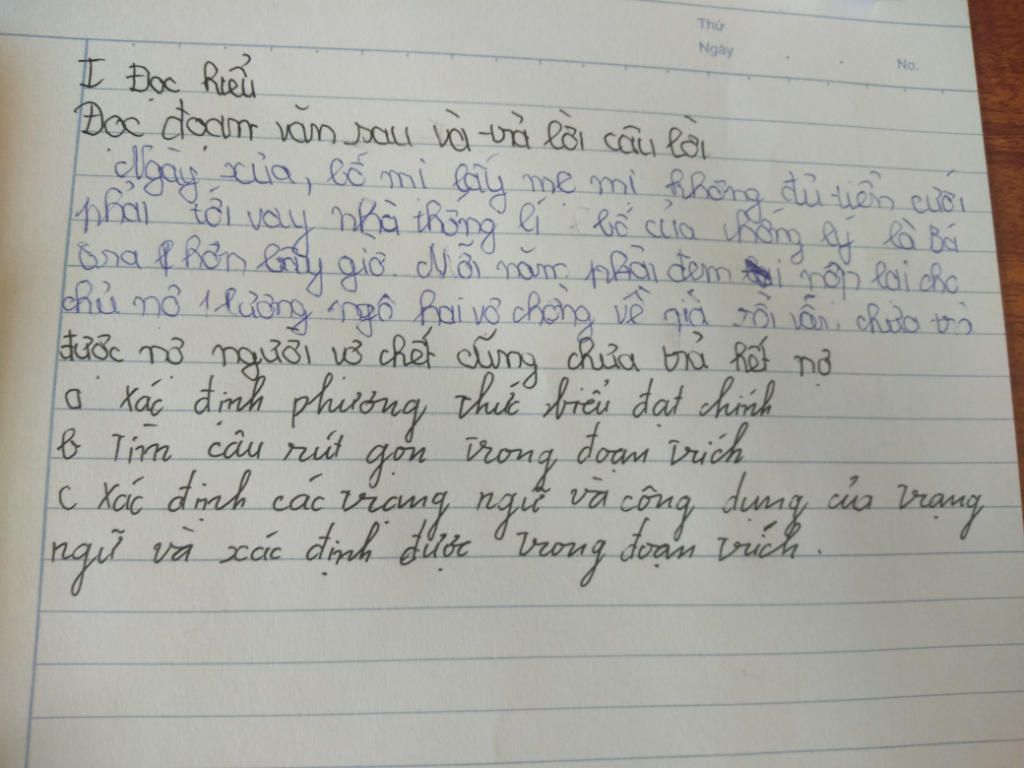 Thứ
Ngày
No.
I Đọc hiểu
Đọc đoạm văn sau và trả lời câu lời
Ngày xửa, bố mị lấy mẹ mị không đủ tiền cưới
phải tới vay nhà thống lí bố của thống lý là Bá
hơn bây giờ. Mỗi năm phải đem nộp lại cho
chủ nợ 1 lương ngô hai vợ chồng về già rồi vẫn chưa trả
được nợ người vợ chết cũng chưa trả hết nợ
a Xác định phương thức biểu đạt chính
b Tìm câu rút gọn trong đoạn trích
c Xác định các trạng ngữ và công dụng của trạng
ngữ và xác định được trong đoạn trích.